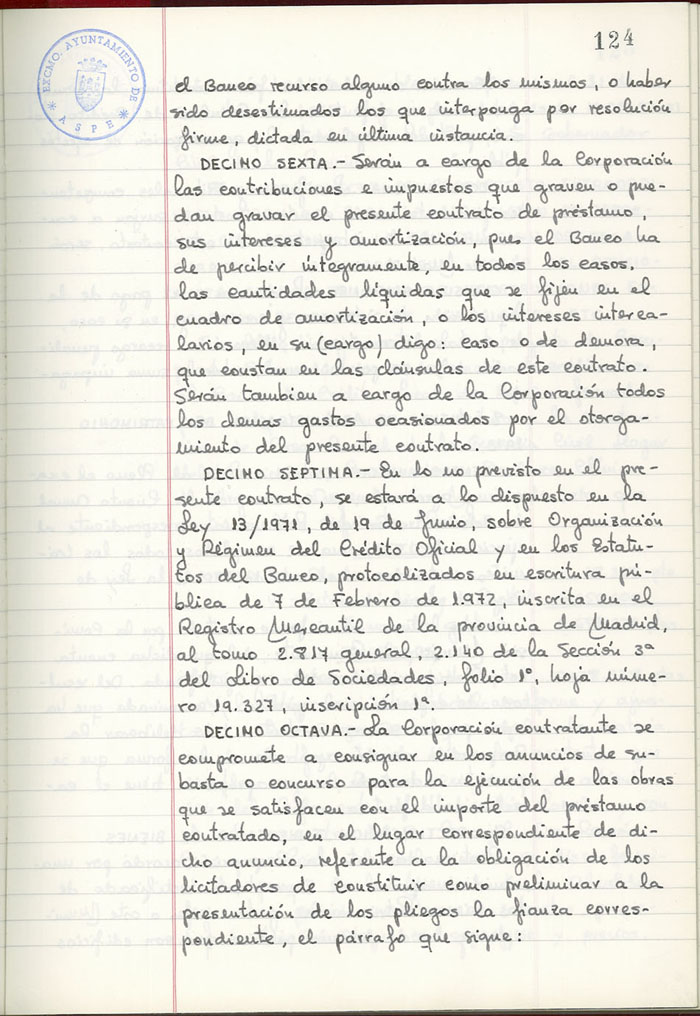 124
EXCMO. AYUNTAMIENTO DE
ASPE
el Banco recurso alguno contra los mismos, o haber
sido desestimados los que interponga por resolución
firme, dictada en última instancia.
DECIMO SEXTA.- Serán a cargo de la Corporación
las contribuciones e impuestos que graven o pue-
dan gravar el presente contrato de préstamo,
sus intereses y amortización, pues el Banco ha
de percibir íntegramente, en todos los casos,
las cantidades líquidas que se fijen en el
cuadro de amortización, o los intereses interca-
larios, en su (cargo) digo: caso o de demora,
que constan en las cláusulas de este contrato.
Serán tambien a cargo de la Corporación todos
los demas gastos ocasionados por el otorga-
miento del presente contrato.
DECIMO SEPTIMA.- En lo no previsto en el pre-
sente contrato, se estará a lo dispuesto en la
Ley 13/1971, de 19 de Junio, sobre Organización
y Régimen del Crédito Oficial y en los Estatu-
tos del Banco, protocolizados en escritura pú-
blica de 7 de Febrero de 1.972, inscrita en el
Registro Mercantil de la provincia de Madrid,
al tomo 2.817 general, 2.140 de la Sección 3ª
del Libro de Sociedades, folio 1º, hoja núme-
ro 19.327, inscripción 1ª.
DECIMO OCTAVA.- La Corporación contratante se
compromete a consignar en los anuncios de su-
basta o concurso para la ejecución de las obras
que se satisfacen con el importe del préstamo
contratado, en el lugar correspondiente de di-
cho anuncio, referente a la obligación de los
licitadores de constituir como preliminar a la
presentación de los pliegos la fianza corres-
pondiente, el párrafo que sigue: